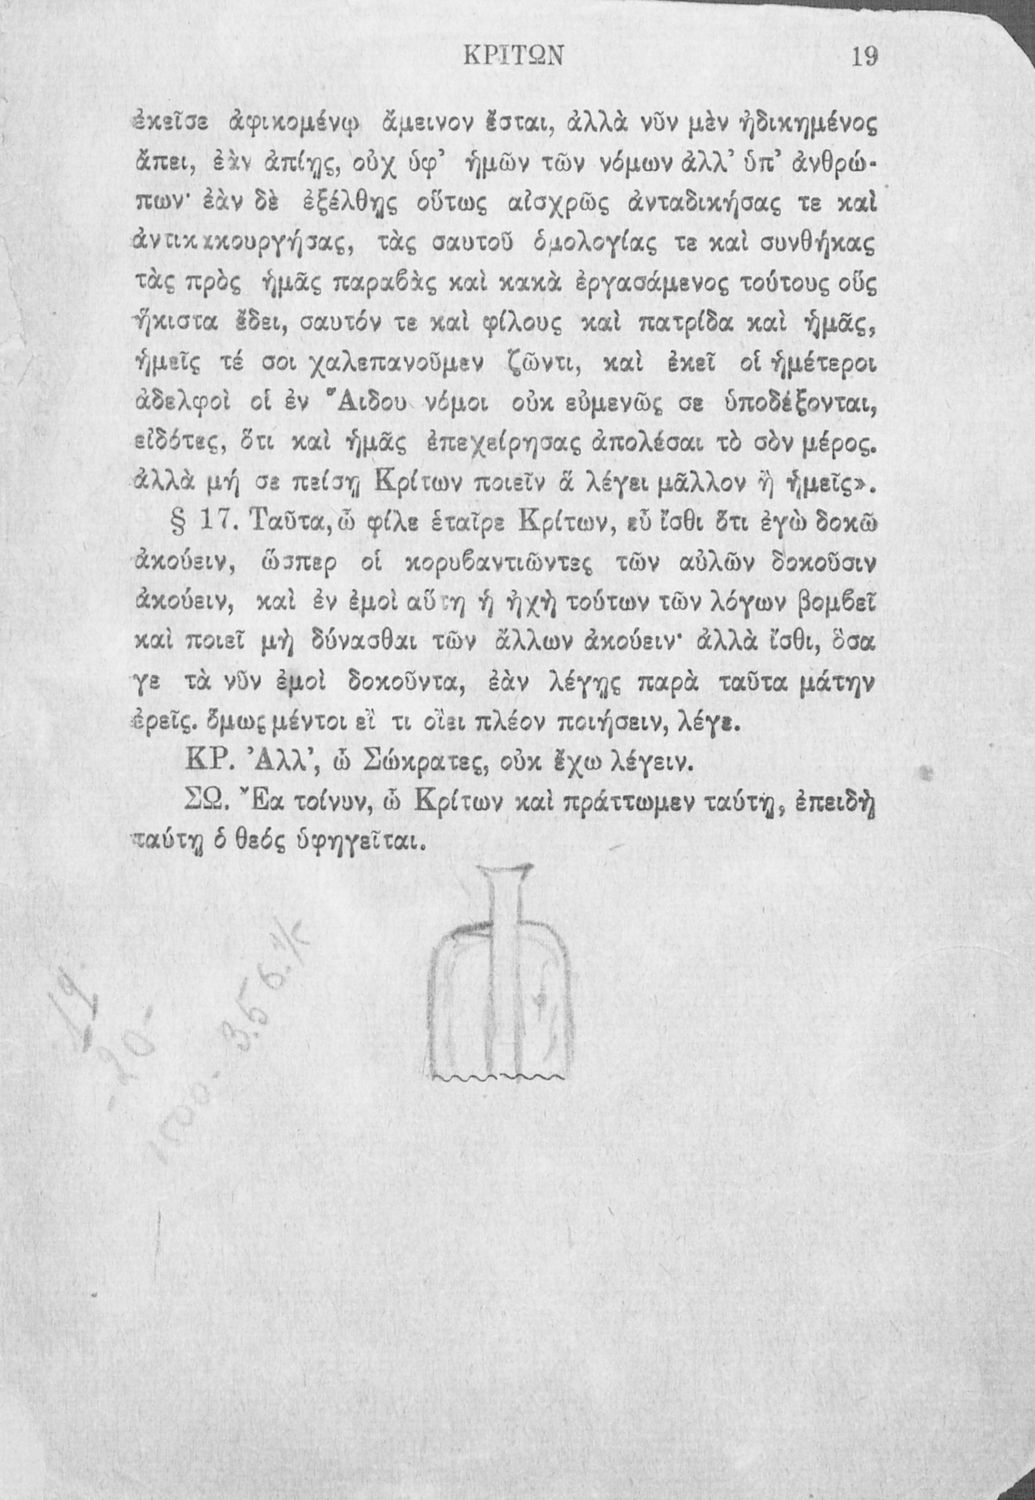 ΚΡΙΤΩΝ 19
ἐκεῖσε ἀφικομένῳ ἄμεινον ἔσται, ἀλλὰ νῦν μὲν ἠδικημένος
ἄπει, ἐὰν ἀπίῃς, οὐχ ὑφ’ ἡμῶν τῶν νόμων ἀλλ’ ὑπ’ ἀνθρώ-
πων· ἐὰν δὲ ἐξέλθῃς οὕτως αἰσχρῶς ἀνταδικήσας τε καὶ
ἀντικακουργήσας, τὰς σαυτοῦ ὁμολογίας τε καὶ συνθήκας
τὰς πρὸς ἡμᾶς παραβὰς καὶ κακὰ ἐργασάμενος τούτους οὓς
ἥκιστα ἔδει, σαυτόν τε καὶ φίλους καὶ πατρίδα καὶ ἡμᾶς,
ἡμεῖς τέ σοι χαλεπανοῦμεν ζῶντι, καὶ ἐκεῖ οἱ ἡμέτεροι
ἀδελφοὶ οἱ ἐν Ἅιδου νόμοι οὐκ εὐμενῶς σε ὑποδέξονται,
εἰδότες, ὅτι καὶ ἡμᾶς ἐπεχείρησας ἀπολέσαι τὸ σὸν μέρος.
ἀλλὰ μή σε πείσῃ Κρίτων ποιεῖν ἃ λέγει μᾶλλον ἢ ἡμεῖς».
§ 17. Ταῦτα, ὦ φίλε ἑταῖρε Κρίτων, εὖ ἴσθι ὅτι ἐγὼ δοκῶ
ἀκούειν, ὥσπερ οἱ κορυβαντιῶντες τῶν αὐλῶν δοκοῦσιν
ἀκούειν, καὶ ἐν ἐμοὶ αὕτη ἡ ἠχὴ τούτων τῶν λόγων βομβεῖ
καὶ ποιεῖ μὴ δύνασθαι τῶν ἄλλων ἀκούειν· ἀλλὰ ἴσθι, ὅσα
γε τὰ νῦν ἐμοὶ δοκοῦντα, ἐὰν λέγῃς παρὰ ταῦτα μάτην
ἐρεῖς. ὅμως μέντοι εἴ τι οἴει πλέον ποιήσειν, λέγε.
ΚΡ. Ἀλλ’, ὦ Σώκρατες, οὐκ ἔχω λέγειν.
ΣΩ. Ἔα τοίνυν, ὦ Κρίτων καὶ πράττωμεν ταύτῃ, ἐπειδὴ
ταύτῃ ὁ θεός ὑφηγεῖται.
19
-20-